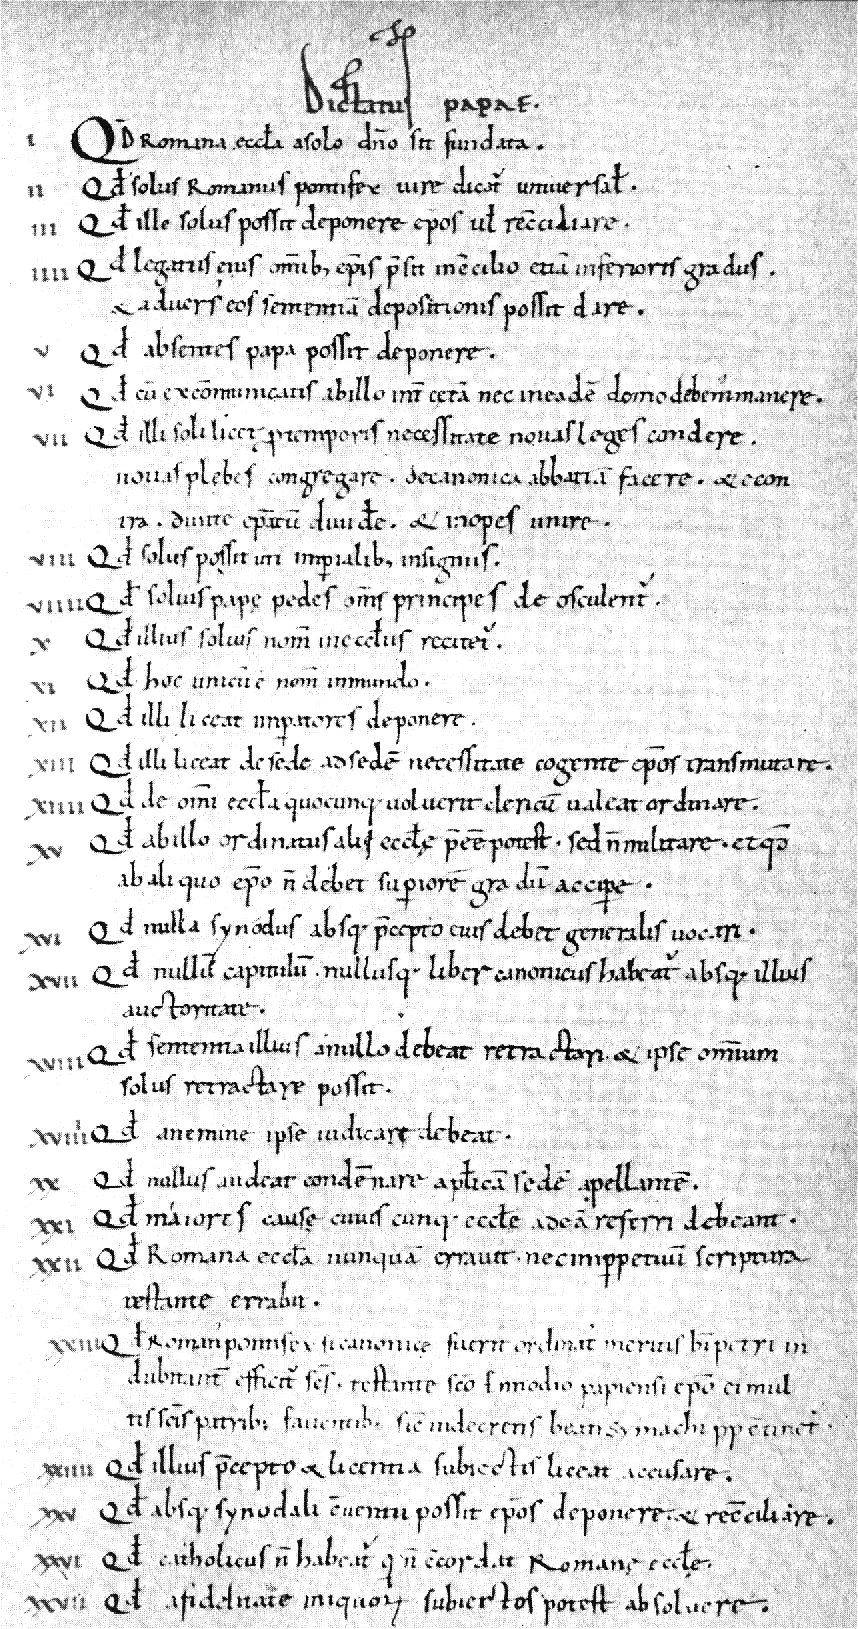 Dictatus papae.
I Qd Romana eccła a solo dño sit fundata.
II Qđ solus Romanus pontifex iure dicat' universał.
III Qđ ille solus possit deponere epos uł recciliare.
IIII Qđ legatus eius omib; epis p̄sit in ccilio etiā inferioris gradus.
& adversus eos sententiā depositionis possit dare.
V Qđ absentes papa possit deponere.
VI Qđ cū excōmunicatis ab illo int' cetā nec in eadē domo debem' manere.
VII Qđ illi soli licet p temporis necessitate novas leges condere.
novas plebes congregare. de canonica abbatiā facere. & econ
tra. divite epatū dividere. & inopes unire.
VIII Qđ solus possit uti imperialib; insigniis.
VIIII Qđ solius papę pedes om̄s principes deosculent'.
X Qđ illius solius nom̄ in eccłiis recitet'.
XI Qđ hoc unicū ē nom̄ in mundo.
XII Qđ illi liceat imperatores deponere.
XIII Qđ illi liceat de sede ad sedē necessitate cogente epos transmutare.
XIIII Qđ de om̄i eccła quocunq; voluerit clericū valeat ordinare.
XV Qđ ab illo ordinatus alii eccłę p̄eē potest. sed n̄ militare. et qđ
ab aliquo epo n̄ debet superiorē gradū accipe.
XVI Qđ nulla synodus absq; p̄cepto eius debet generalis vocari.
XVII Qđ nullū capitulū. nullusq; liber canonicus habeat' absq; illius
auctoritate.
XVIII Qđ sententia illius a nullo debeat retractari & ipse omnium
solus retractare possit.
XVIIII Qđ a nemine ipse iudicare debeat.
XX Qđ nullus audeat condēnare apłicā sedē apellantē.
XXI Qđ maiores cause cuiuscunq; eccłe ad eā referri debeant.
XXII Qđ Romana eccła nunquā erravit. nec inppetuū scriptura
testante errabit.
XXIII Qđ Roman' pontifex si canonice fuerit ordinat' meritis bi petri in
dubitant' efficit' scs. testante sco Ennodio papiensi epo ei mul
tis scis patribus faventib; sic in decretis beati Symachi pp ctinet'.
XXIIII Qđ illius p̄cepto & licentia subiectis liceat accusare.
XXV Qđ absq; synodali cventu possit epos deponere & recciliare.
XXVI Qđ catholicus n̄ habeat' q n̄ ccordat Romanę eccłę.
XXVII Qđ a fidelitate iniquorum subiectos potest absolvere.